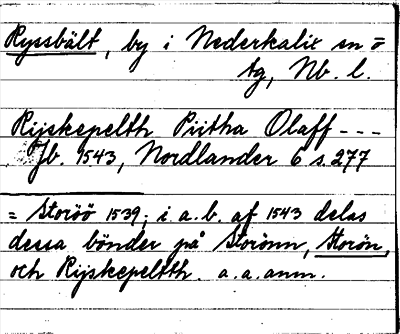 Ryssbält, by i Nederkalix sn =
tg, Nb. l.
Rijskepelth Piitha Olaff - - -
Jb. 1543, Nordlander 6 s. 277
= Storöö 1539; i a. b. af 1543 delas
dessa bönder på Storönn, Storön,
och Rijskepeltth. a. a. anm.